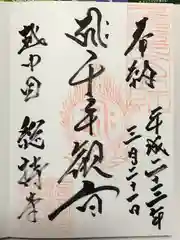 奉納
平成二十三年
三月二十一日
千手観音
越中国
総持寺